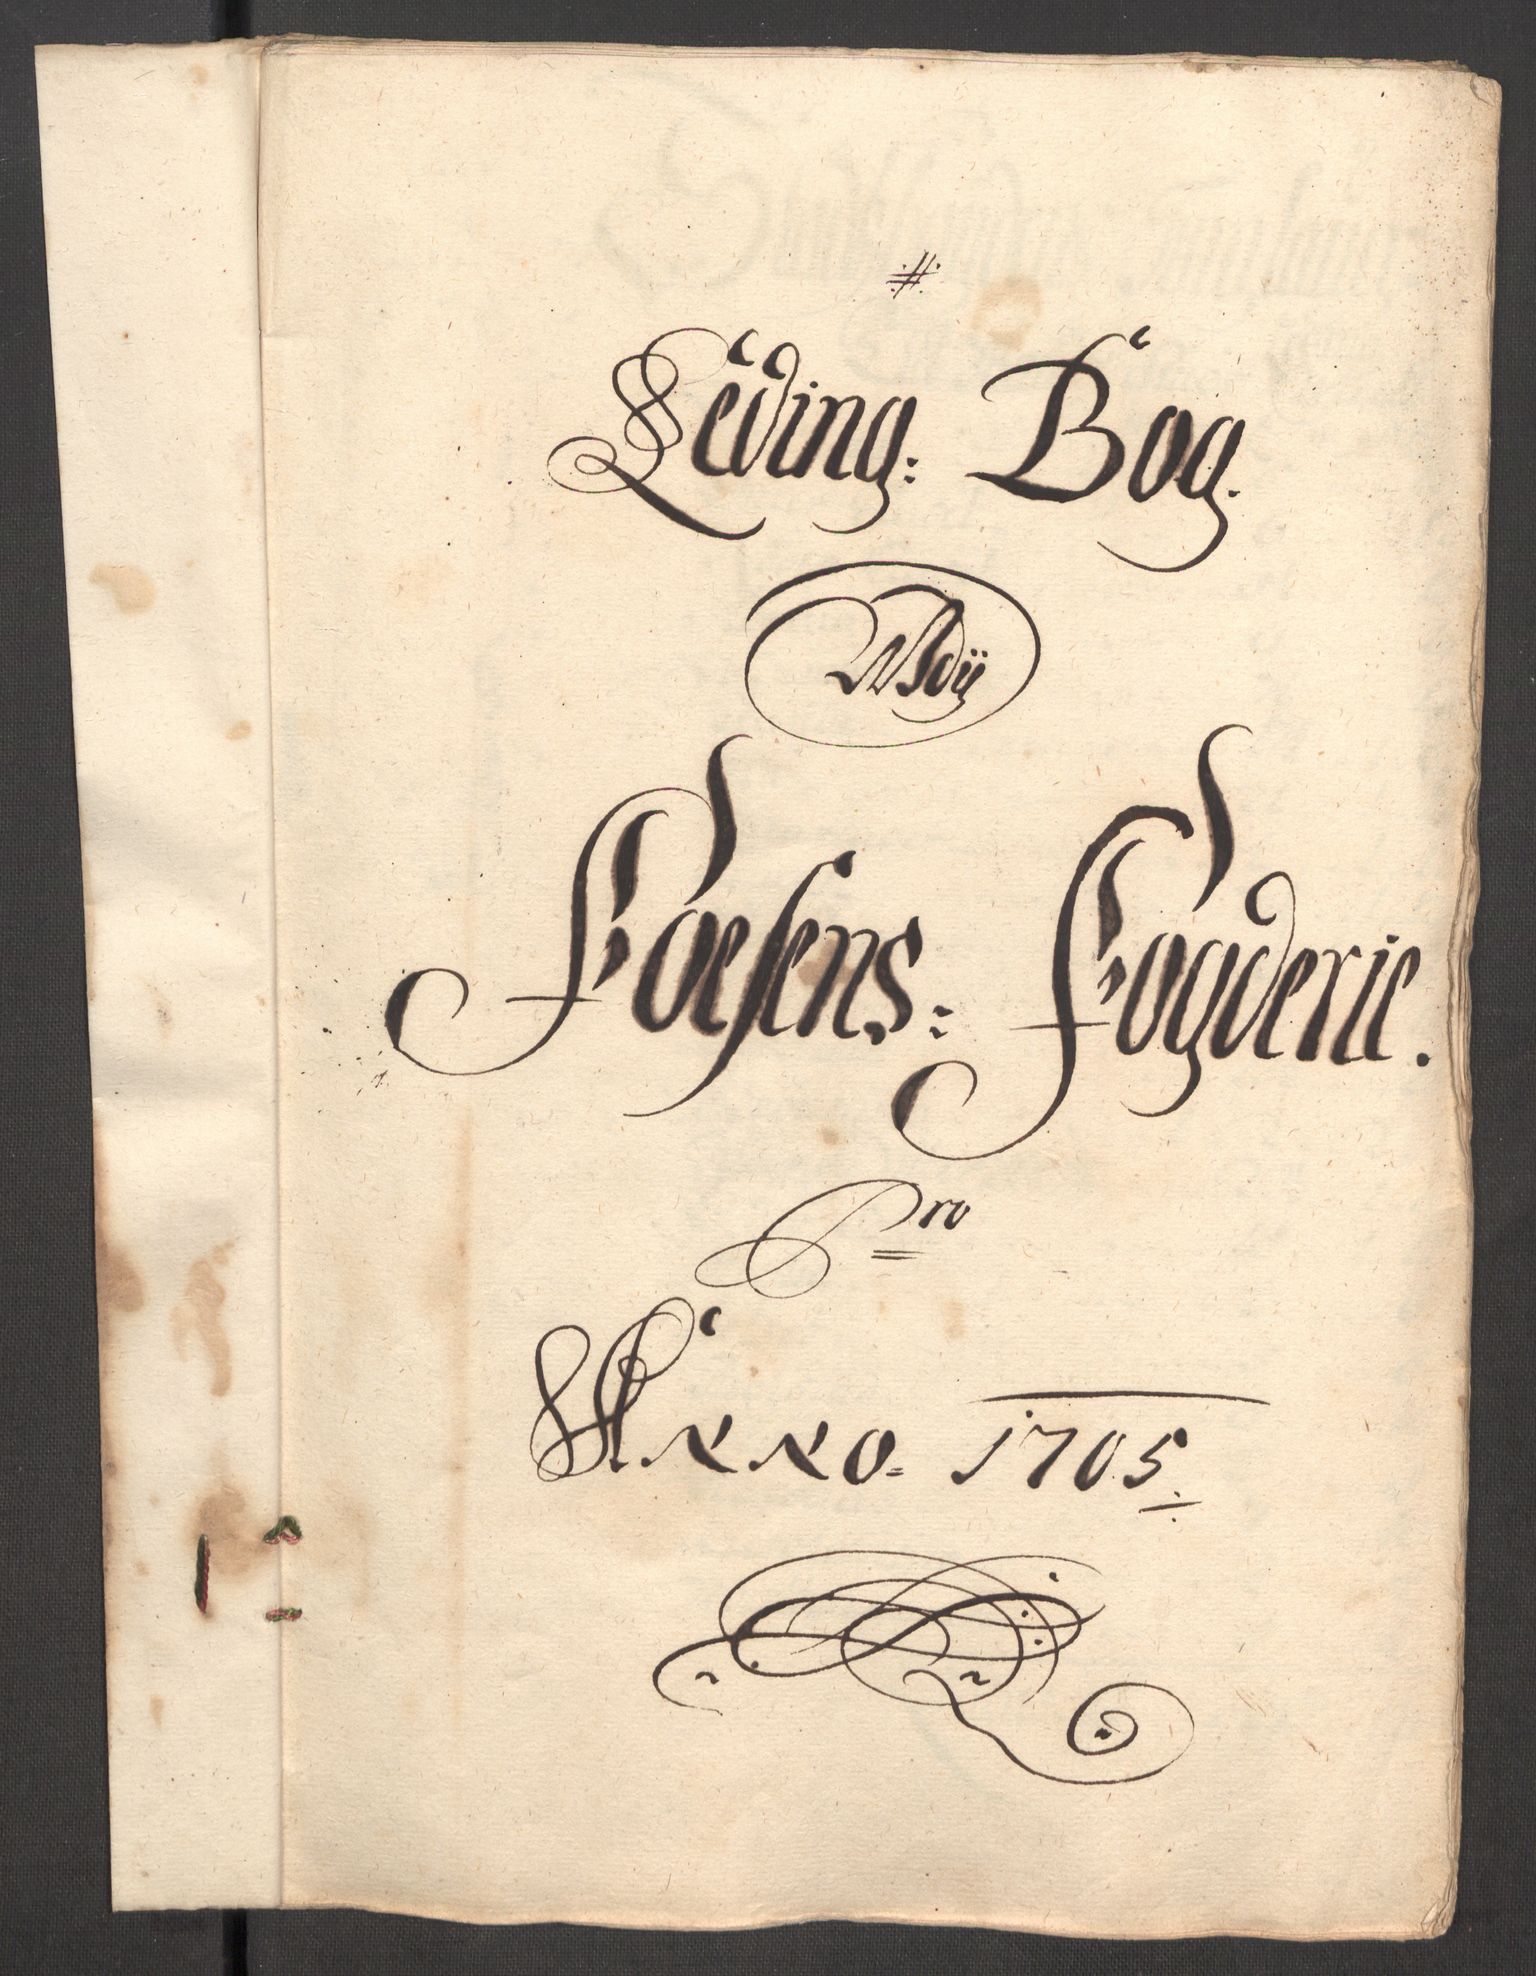 #
Leding: Bog.
Udj
Foesens: Fogderie.
Pro
Anno. 1705.